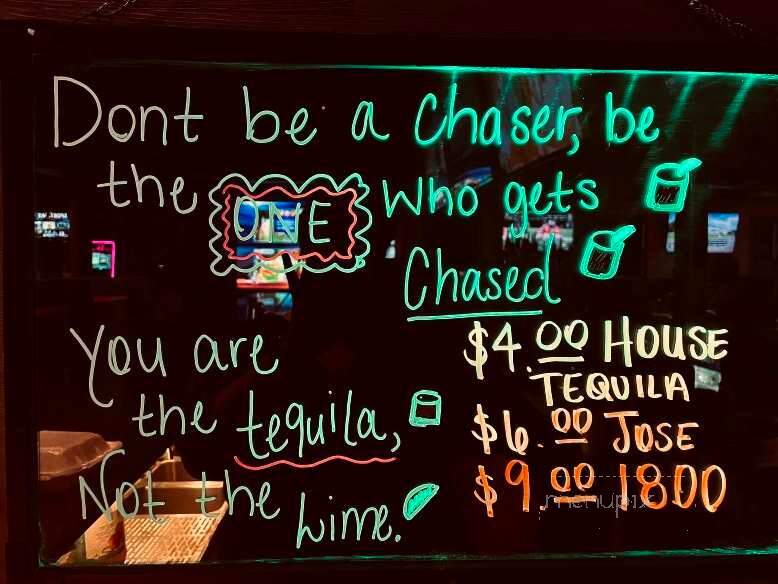 Dont be a Chaser, be
the ONE who gets
Chased
You are
the tequila,
Not the Lime.
$4.00 HOUSE
TEQUILA
$6.00 JOSE
$9.00 1800
menupix